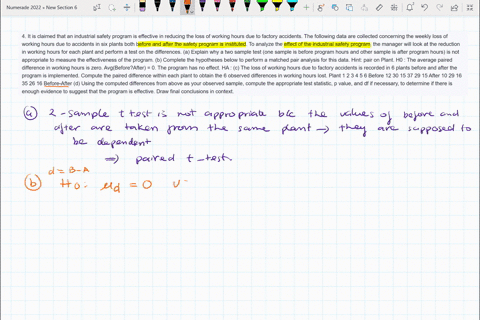 Numerade 2022 > New Section 6
4. It is claimed that an industrial safety program is effective in reducing the loss of working hours due to factory accidents. The following data are collected concerning the weekly loss of
working hours due to accidents in six plants both before and after the safety program is instituted. To analyze the effect of the industrial safety program, the manager will look at the reduction
in working hours for each plant and perform a test on the differences. (a) Explain why a two sample test (one sample is before program hours and other sample is after program hours) is not
appropriate to measure the effectiveness of the program. (b) Complete the hypotheses below to perform a matched pair analysis for this data. Hint: pair on Plant. H0 : The average paired
difference in working hours is zero. Avg(Before?After) = 0. The program has no effect. HA : (c) The loss of working hours due to factory accidents is recorded in 6 plants before and after the
program is implemented. Compute the paired difference within each plant to obtain the 6 observed differences in working hours lost. Plant 1 2 3 4 5 6 Before 12 30 15 37 29 15 After 10 29 16
35 26 16 Before-After (d) Using the computed differences from above as your observed sample, compute the appropriate test statistic, p value, and df if necessary, to determine if there is
enough evidence to suggest that the program is effective. Draw final conclusions in context.
(a) 2-sample t test is not appropriate b/c the values of before and
after are taken from the same plant → they are supposed to
be dependent
⇒ paired t-test.
d = B-A
(b) H0: μd = 0